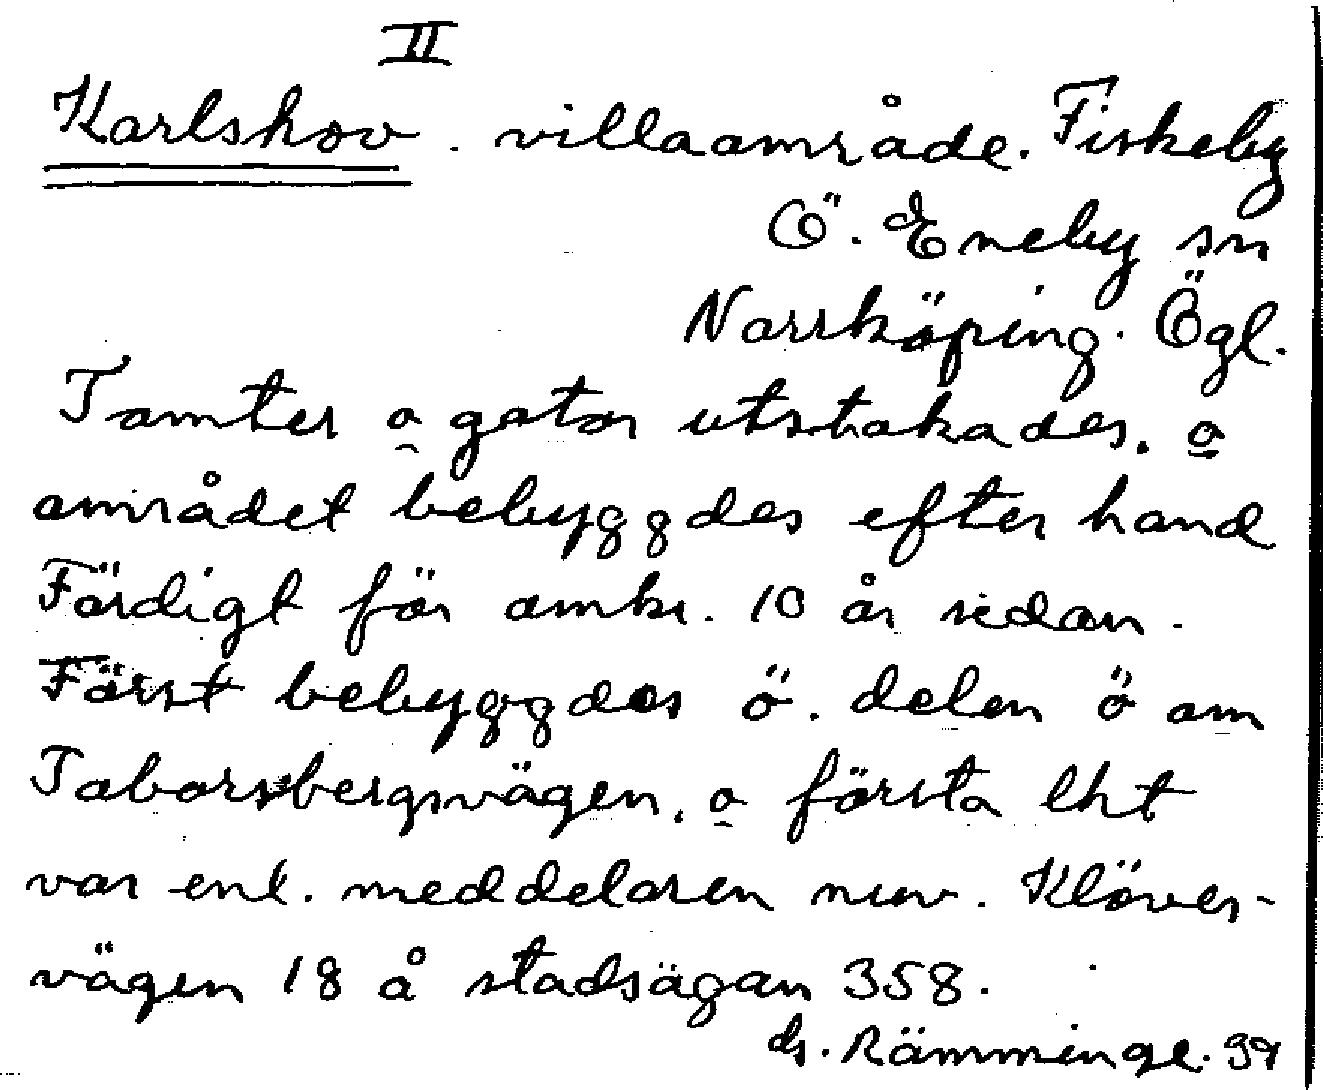 II
Karlshov . villaområde. Fiskeby
Ö. Eneby sn
Norrköping. Ögl.
Tomter o gator utstakades. o
området bebyggdes efter hand
Färdigt för omkr. 10 år sedan.
Först bebyggdes ö. delen ö om
Taborsbergsvägen, o första lht
var enl. meddelaren nuv. Klöver-
vägen 18 å stadsägan 358.
G. Rämminge.